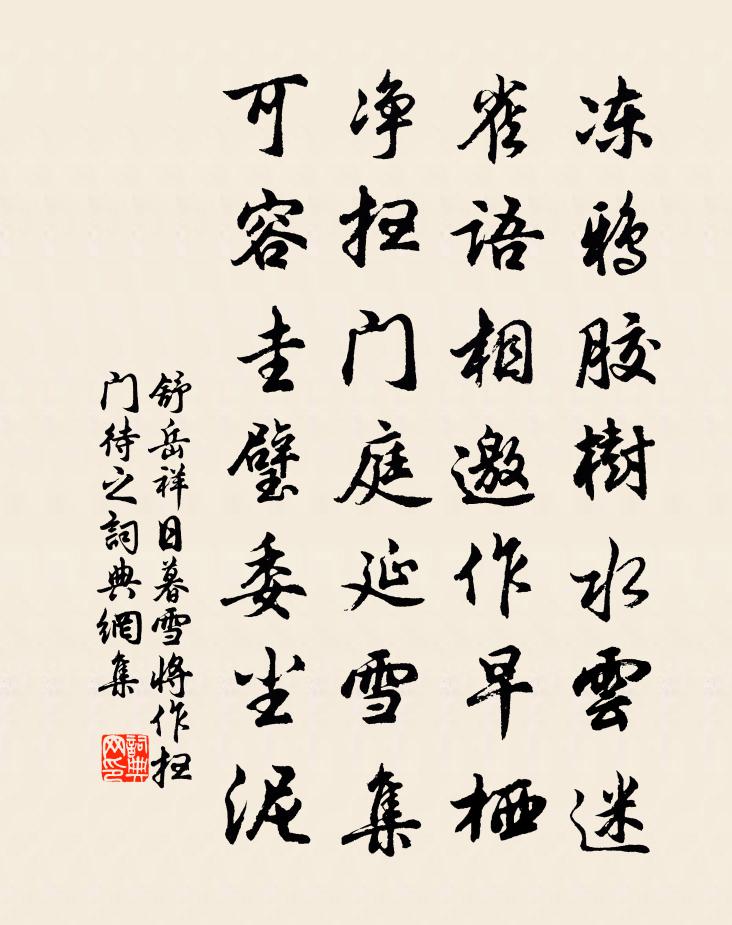 冻鸦胶樹水雲迷
雀语相邀作早栖
净扫门庭延雪集
可容圭璧委尘泥
舒岳祥日暮雪将作扫
门待之詞典網集
詞典网印